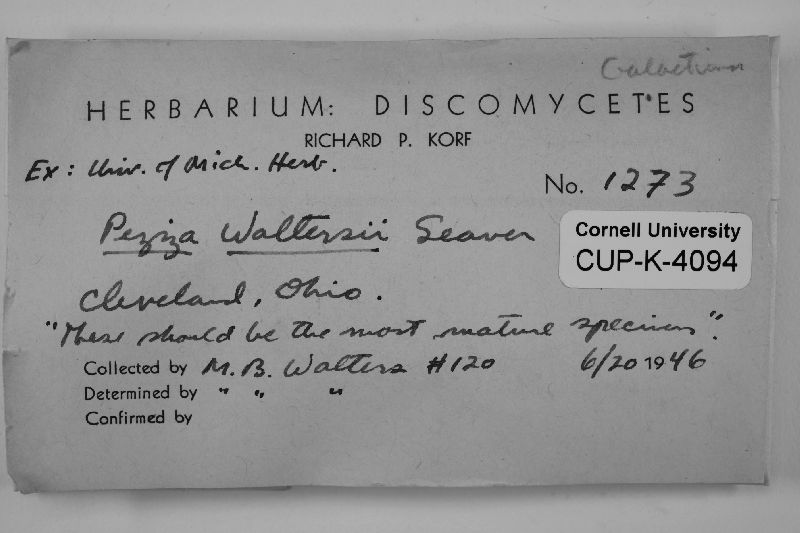 Galactinia
HERBARIUM: DISCOMYCETES
RICHARD P. KORF
Ex: Univ. of Mich. Herb.
No. 1273
Peziza Waltersii Seaver
Cornell University
CUP-K-4094
Cleveland, Ohio.
"These should be the most mature specimens".
Collected by M. B. Walters #120 6/20 1946
Determined by " " "
Confirmed by